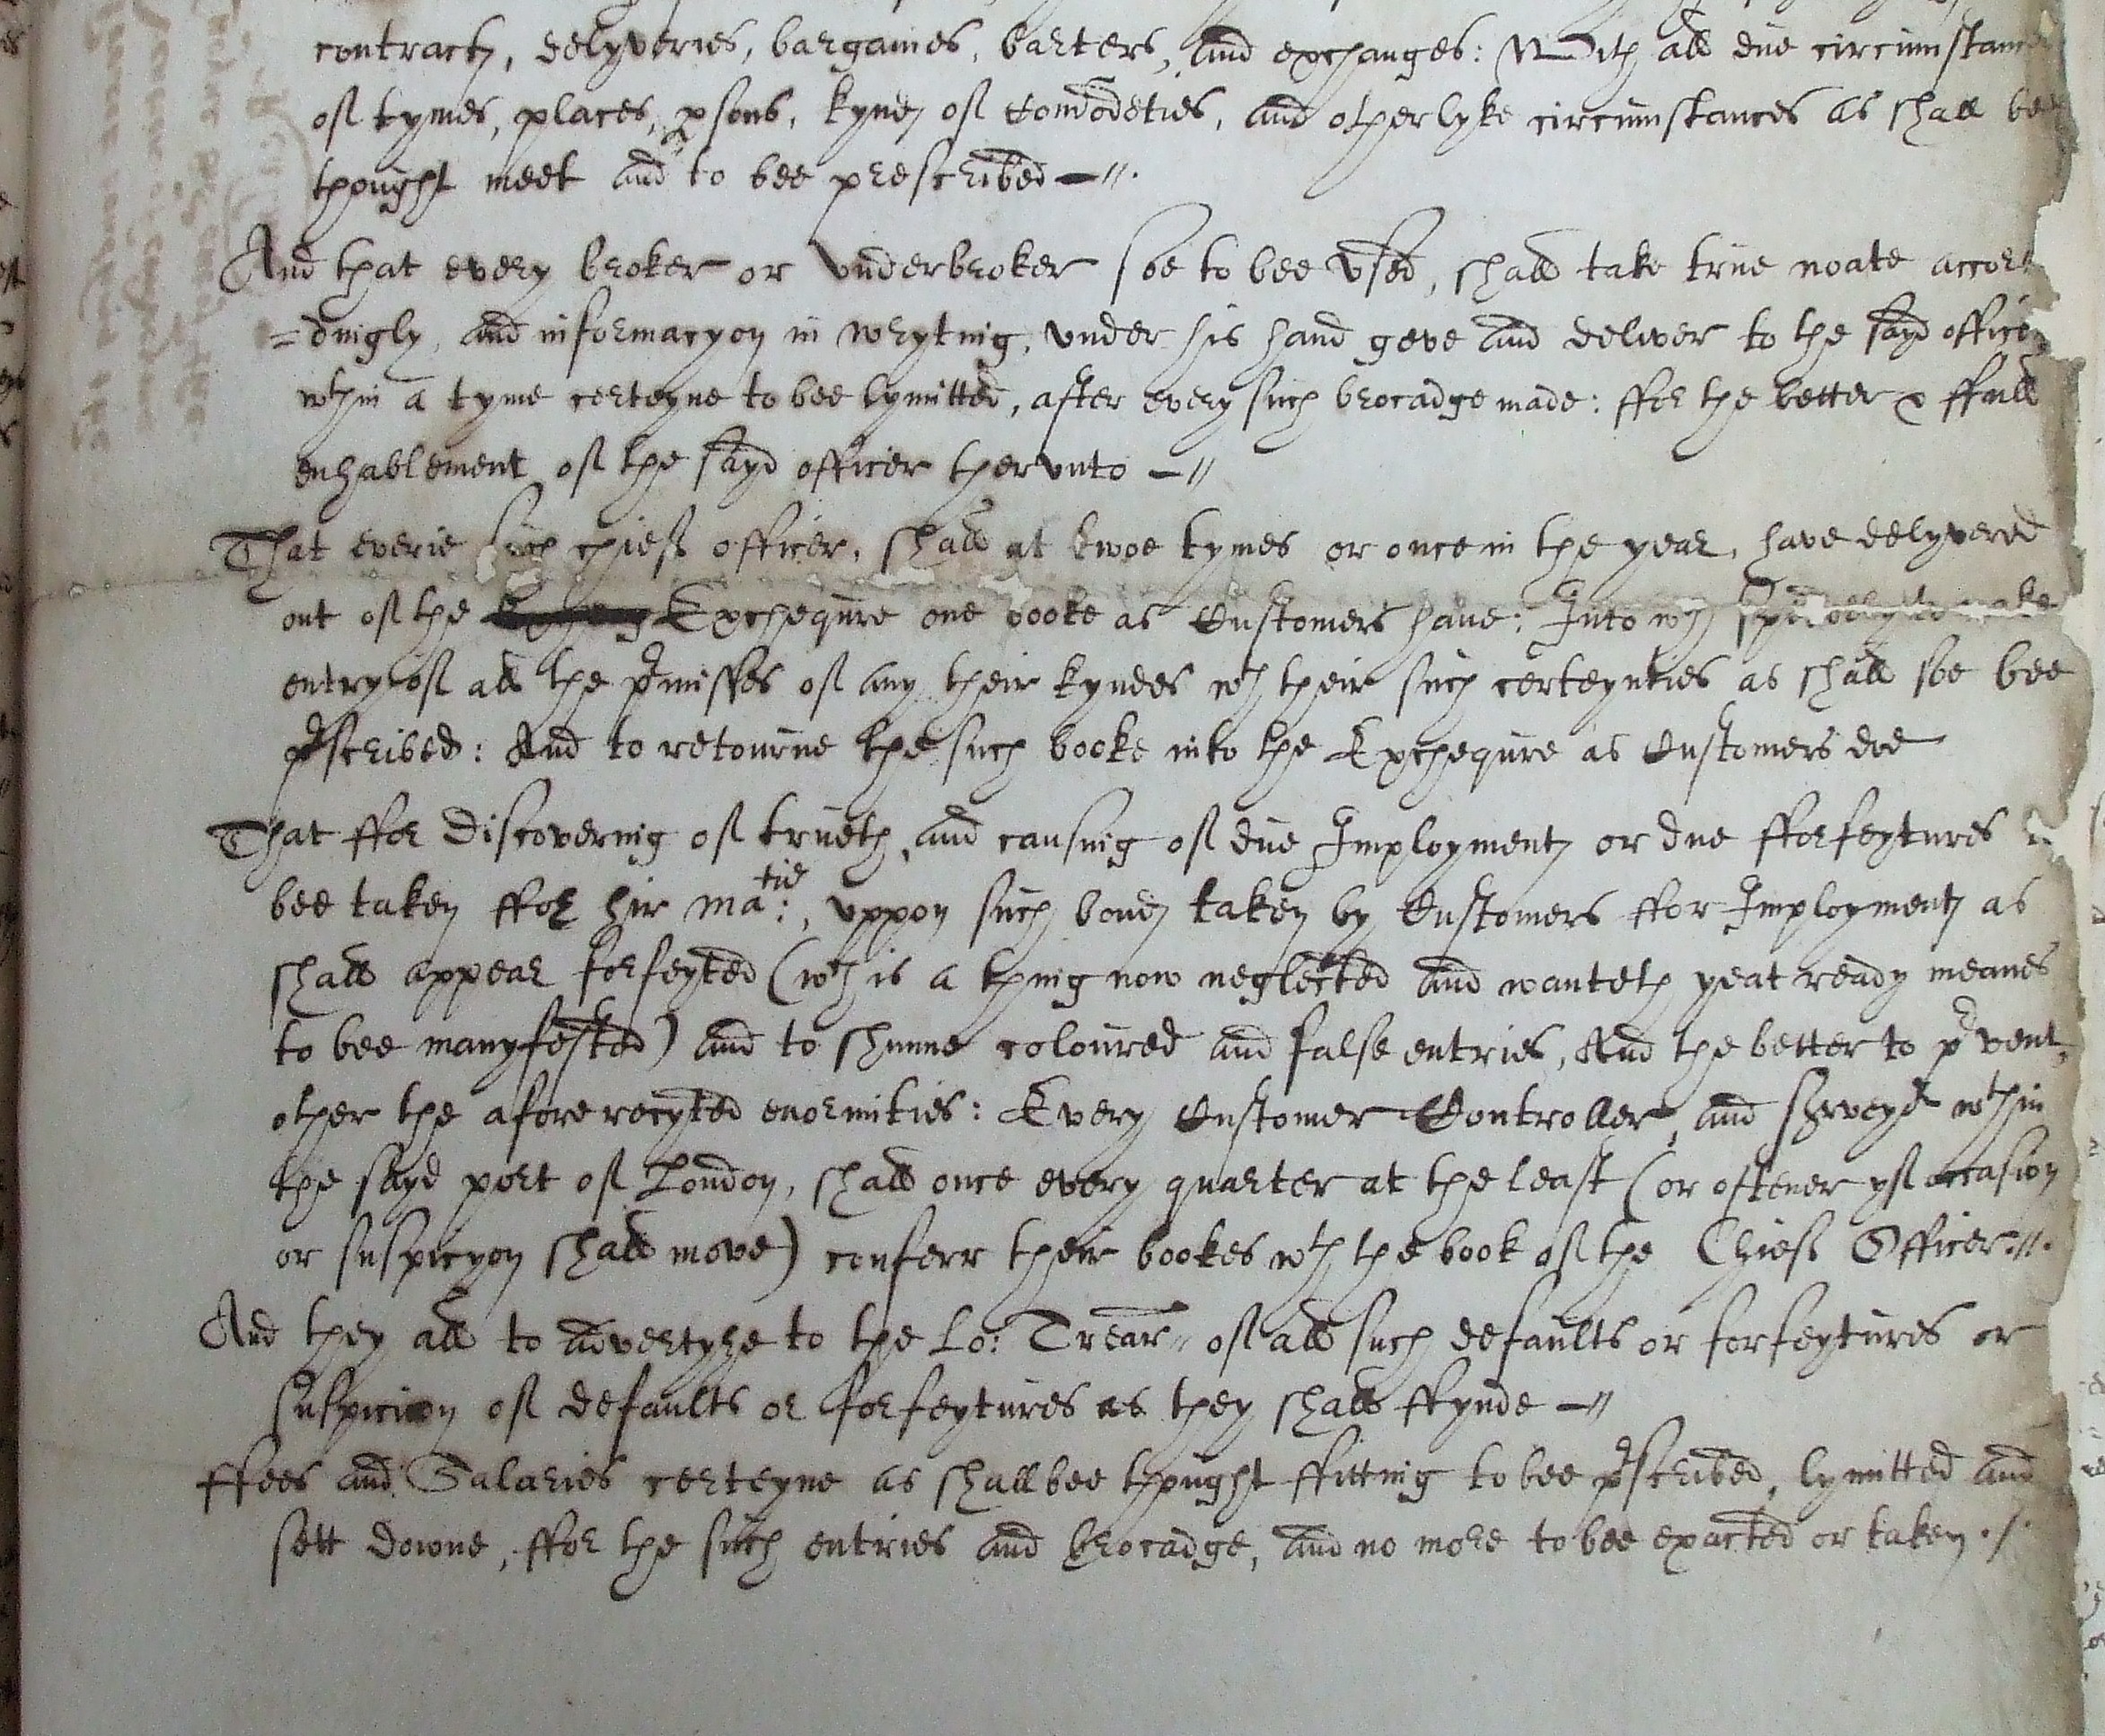 contract, delyveries, bargaines, barters, and exchanges: With all due circumstances
of tymes, places, psons, kynd of Comodeties, and other lyke circumstances as shall bee
thought meet and to bee prescribed —//.
And that every broker or underbroker soe to bee vsed, shall take true noate accor
=dingly, and informacyon in wryting, vnder his hand geve and deliver to the sayd officer
wthin a tyme certeyne to bee lymitted, after every such brocadge made: ffor the better & ffull
enhablement of the sayd officer thervnto —//
That everie such chief officer, shall at twoe tymes or once in the year, have delyvered
out of the Exchequre one booke as Customers have: Into wch
entry of all the pmisses of any their kyndes wth their such certeynties as shall soe bee
pscribed: And to retourne the such booke into the Exchequre as Customers doe
That ffor discovering of trueth, and causing of due Imployment or due fforfeytures
bee taken ffor hir Matie:, vppon such bond taken by Customers ffor Imployment as
shall appear forfeyted (wch is a thing now neglected and wanteth yeat ready meanes
to bee manyfested) and to shunne coloured and false entries, And the better to pvent,
other the afore recyted enormities: Every Customer Controller, and Srveyr wthin
the sayd port of London, shall once every quarter at the least (or oftener yf occasion
or suspicyon shall move) conferr their bookes wth the book of the Chief Officer.//.
And they all to advertyze to the Lo: Trear// of all such defaults or forfeytures or
suspicion of defaults or forfeytures as they shall ffynde —//
ffees and Salaries certeyne as shall bee thought ffitting to bee pscribed, lymitted and
sett downe, ffor the such entries and brocadge, and no more to bee exacted or taken ./.